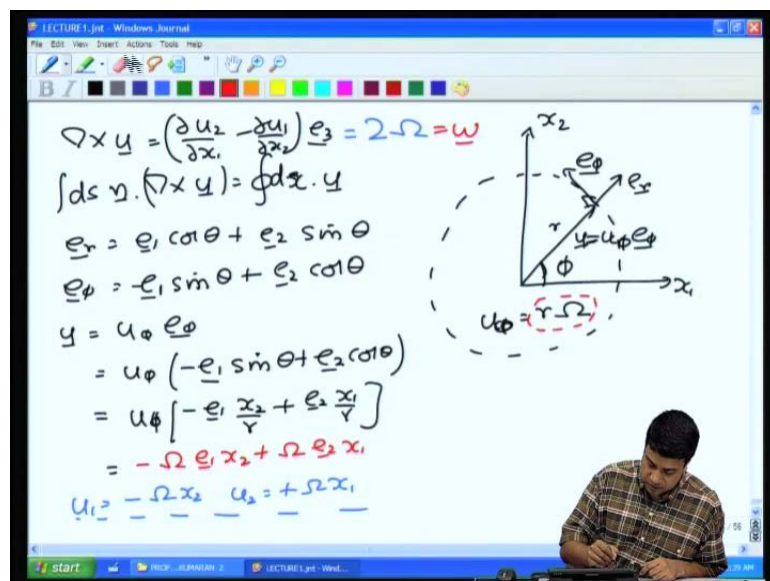 LECTURE1.jnt - Windows Journal
File Edit View Insert Actions Tools Help
B I
∇×u = (∂u₂/∂x₁ - ∂u₁/∂x₂) e₃ = 2Ω = ω
∫ds n.(∇×u) = ∮dx.u
e_r = e₁ cosθ + e₂ sinθ
e_ϕ = -e₁ sinθ + e₂ cosθ
u = u_ϕ e_ϕ
= u_ϕ (-e₁ sinθ + e₂ cosθ)
= u_ϕ [-e₁ x₂/r + e₂ x₁/r]
= -Ω e₁ x₂ + Ω e₂ x₁
u₁ = -Ωx₂ u₂ = +Ωx₁
x₂
e_ϕ
e_r
r
u = u_ϕ e_ϕ
ϕ
x₁
u_ϕ = rΩ
/ 56
start
PROF...KUMARAN 2
LECTURE1.jnt - Wind...
:39 AM